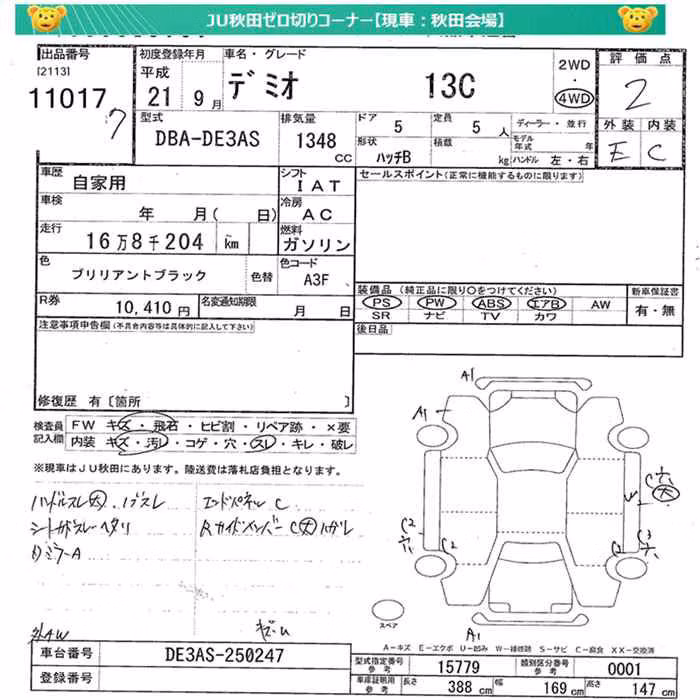 JU秋田ゼロ切りコーナー【現車：秋田会場】
出品番号
[2113]
11017
7
初度登録年月
平成
21年9月
車名・グレード
デミオ 13C
2WD
・
4WD
評価点
2
型式
DBA-DE3AS
排気量
1348
CC
ドア 5
定員 5人
形状 ハッチB
積載 kg
ディーラー・並行
モデル年式 年
ハンドル 左・右
外装 内装
E C
車歴 自家用
シフト IAT
セールスポイント(正常に機能するものに限ります)
車検 年 月( 日)
冷房 AC
走行 16万8千204 km
燃料 ガソリン
色 ブリリアントブラック 色替
色コード A3F
装備品 (純正品に限り○をつけてください)
新車保証書
PS PW ABS エアB AW
SR ナビ TV カワ
有・無
R券 10,410円
名変通知期限 月 日
後日品
注意事項申告欄(不具合内容等は具体的に記入して下さい)
修復歴 有〔箇所 〕
検査員記入欄
FW キズ・飛石・ヒビ割・リペア跡・×要
内装 キズ・汚レ・コゲ・穴・スレ・キレ・破レ
※現車はJU秋田にあります。陸送費は落札店負担となります。
ハンドルスレ大、ノブスレ
エンドパネル C
シートカドスレ・ヘタリ
RサイドメンバーC大ハガレ
リミラーA
A1
A1
C2
C2
C3
C
大
A1
スペア
外AW
A－キズ E－エクボ U－凹み W－補修跡 S－サビ C－腐食 XX－交換済
車台番号 DE3AS-250247
型式指定番号 参考 15779
類別区分番号 参考 0001
登録番号
車庫証明用 参考 長さ 388 cm 幅 169 cm 高さ 147 cm